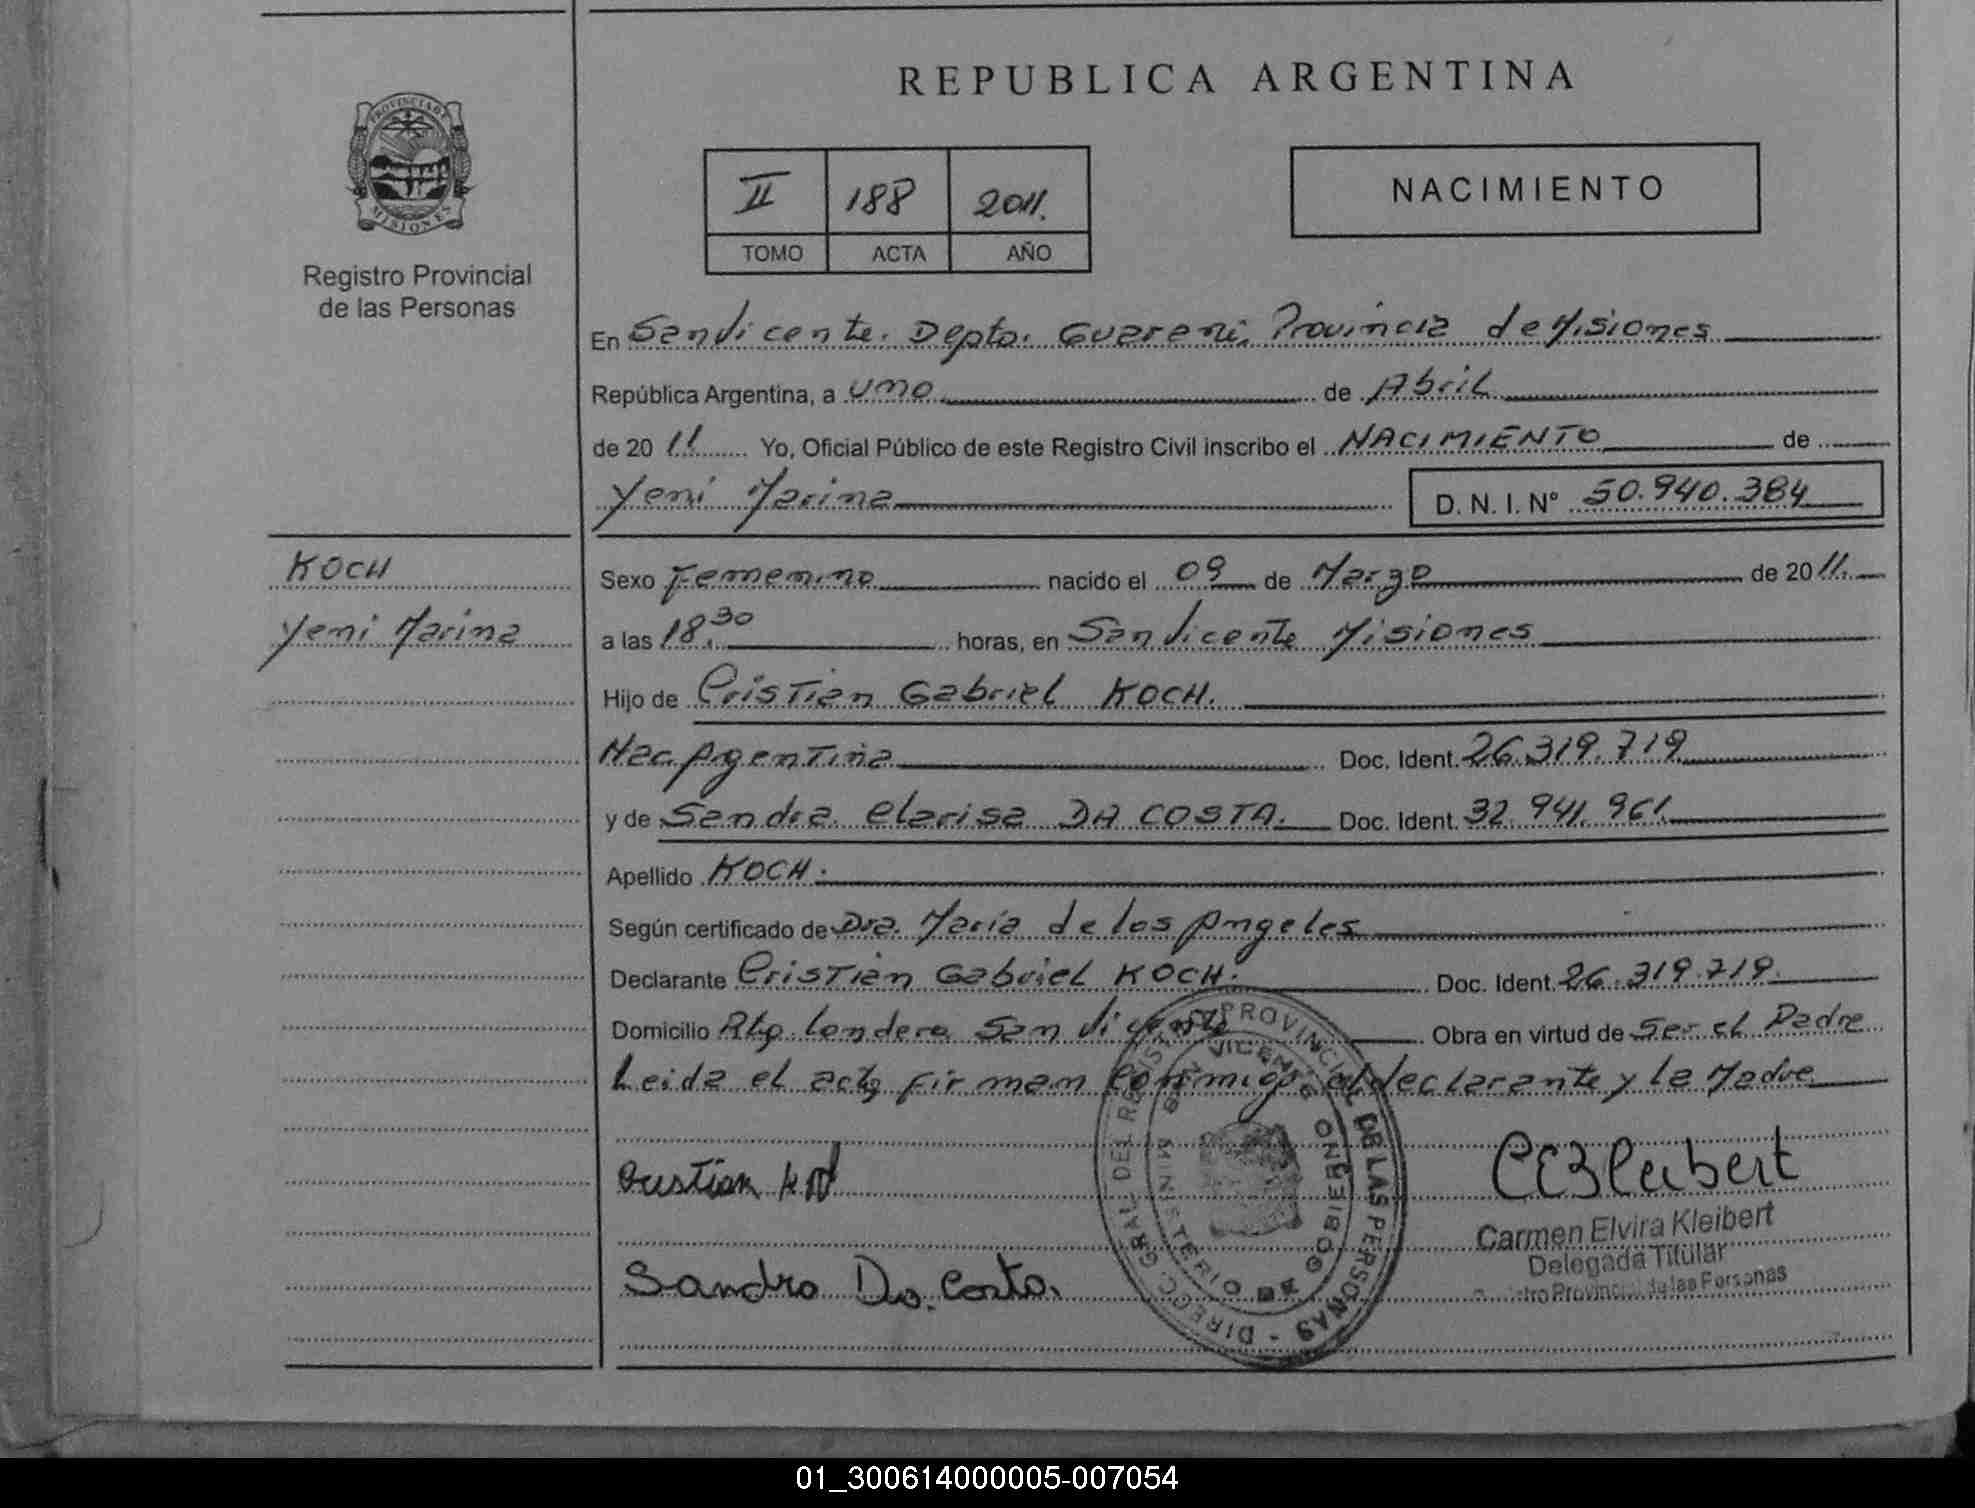 REPUBLICA ARGENTINA
PROVINCIA DE
MISIONES
Registro Provincial
de las Personas
II 188 2011.
TOMO ACTA AÑO
NACIMIENTO
En San Vicente. Depto. Guarani, Provincia de Misiones
República Argentina, a uno de Abril
de 20 11 Yo, Oficial Público de este Registro Civil inscribo el NACIMIENTO de
Yeni Marina D. N. I. N° 50.940.384
KOCH
Yeni Marina
Sexo Femenino nacido el 09 de Marzo de 2011.
a las 18.30 horas, en San Vicente Misiones
Hijo de Cristian Gabriel KOCH.
Nac. Argentina Doc. Ident. 26.319.719
y de Sandra Clarisa DA COSTA. Doc. Ident. 32.941.961.
Apellido KOCH.
Según certificado de Dra. María de los Angeles
Declarante Cristian Gabriel KOCH. Doc. Ident. 26.319.719.
Domicilio San Vicente Obra en virtud de Ser el Padre
Leida el acta firman conmigo el declarante y la Madre
Cristian
CEKleibert
Carmen Elvira Kleibert
Delegada Titular
Provincial de las Personas
Sandra Da. Costa.
DIRECC. GRAL. DEL REGIST. PROVINCIAL DE LAS PERSONAS -
MINISTERIO DE GOBIERNO
SAN VICENTE
01_300614000005-007054